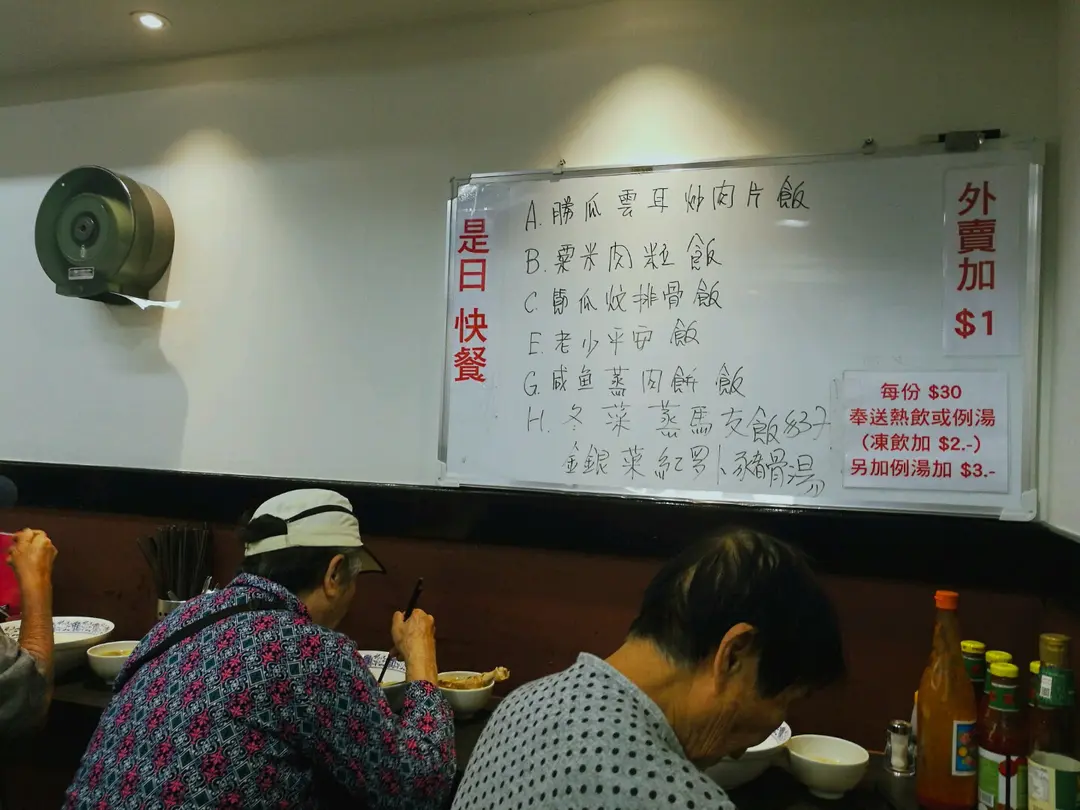 是日 快餐
A. 勝瓜雲耳炒肉片飯
B. 粟米肉粒飯
C. 瓜炆排骨飯
E. 老少平安飯
G. 咸鱼蒸肉餅飯
H. 冬菜蒸馬友飯 $37
銀菜紅罗卜豬骨湯
外賣加
$1
每份 $30
奉送熱飲或例湯
(凍飲加 $2.-)
另加例湯加 $3.-